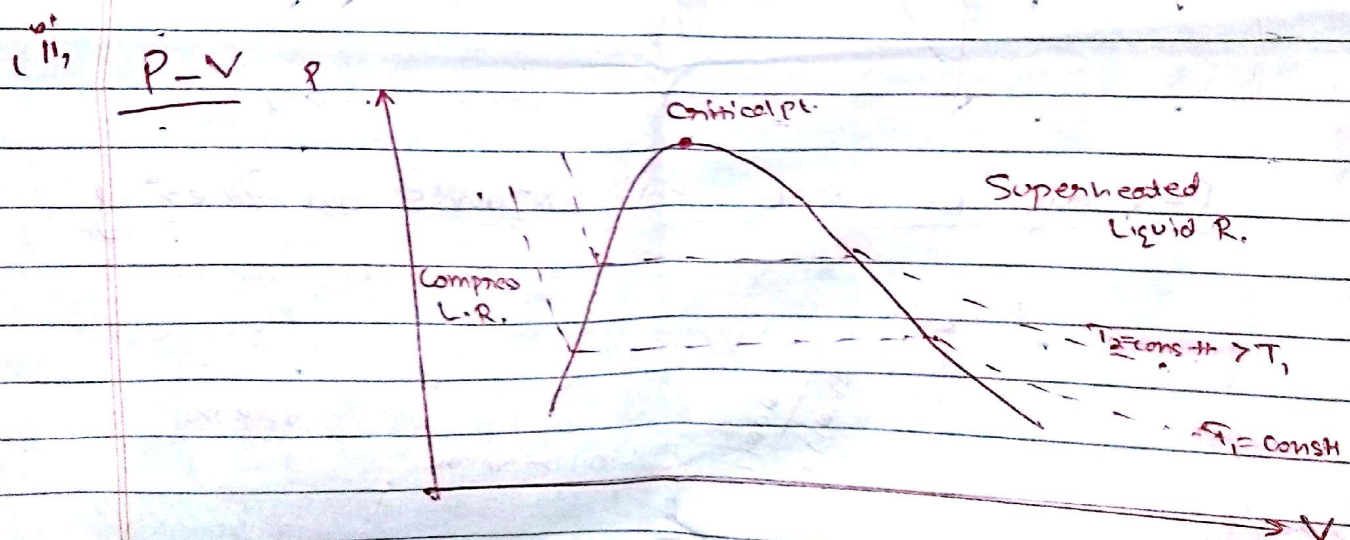 P-V
P
Critical pt.
Superheated
Liquid R.
Compress
L.R.
T2=constt > T1
T1 = constt
V